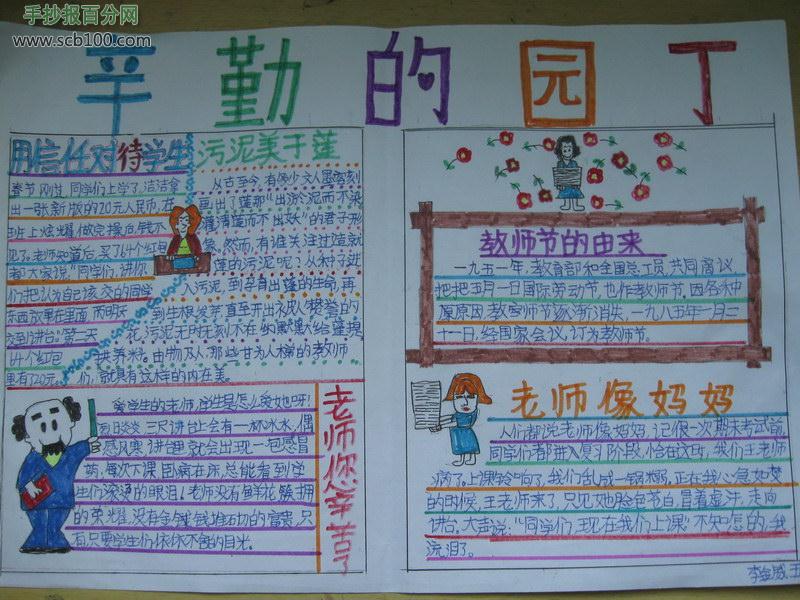 手抄报百分网
www.scb100.com
辛勤的园丁
用信任对待学生
春节刚过,同学们上学了,洁洁拿
出一张新版的20元人民币,在
班上炫耀,做完操后,钱不
见了。老师知道后,买了64个红包
来,对大家说:"同学们,请你
们把认为自己该交的同学
东西放里在里面,两明天
交到讲台"第二天
64个红包
里有20元。
污泥美于莲
从古至今,有多少文人墨客刻
画出了莲那"出淤泥而不染
濯清莲而不出妖"的君子形
象,然而,有谁关注过造就
莲的污泥呢?从种子进
入污泥,到孕育出莲的生命,再
到生根发芽直至开出被人赞誉的
花,污泥无时无刻不在纳默默大给莲提
供养料。由物及人,那些甘为人梯的教师
们,就具有这样的内在美。
爱学生的老师,学生是怎么爱她呀!
烈日炎炎,三尺讲台上会有一杯冰水,偶
感风寒,讲台里就会出现一包感冒
药,每次下课,卧病在床,总能看到学
生们滚滴的眼泪!老师没有鲜花簇拥
的荣耀,没有金钱堆砌的富贵,只
有只要学生们依依不舍的目光。
老师您辛苦了
教师节的由来
一九五一年,教育部和全国总工员,共同商议
把把五月一日国际劳动节,也作教师节。因各种
原原因教穿师节逐渐消失,一九八五年一月二
十一日,经国家会议,订为教师节。
老师像妈妈
人们都说老师像妈妈,记得一次期末考试前,
同学们都进入复习阶段,恰在这时,我们王老师
病了。上课铃响了,我们乱成一锅粥,正在我心急如焚
的时候,王老师来了,只见她脸色苍白,冒着虚汗,走向
讲台,大声说:"同学们,现在我们上课"不知怎的,我
流泪了。